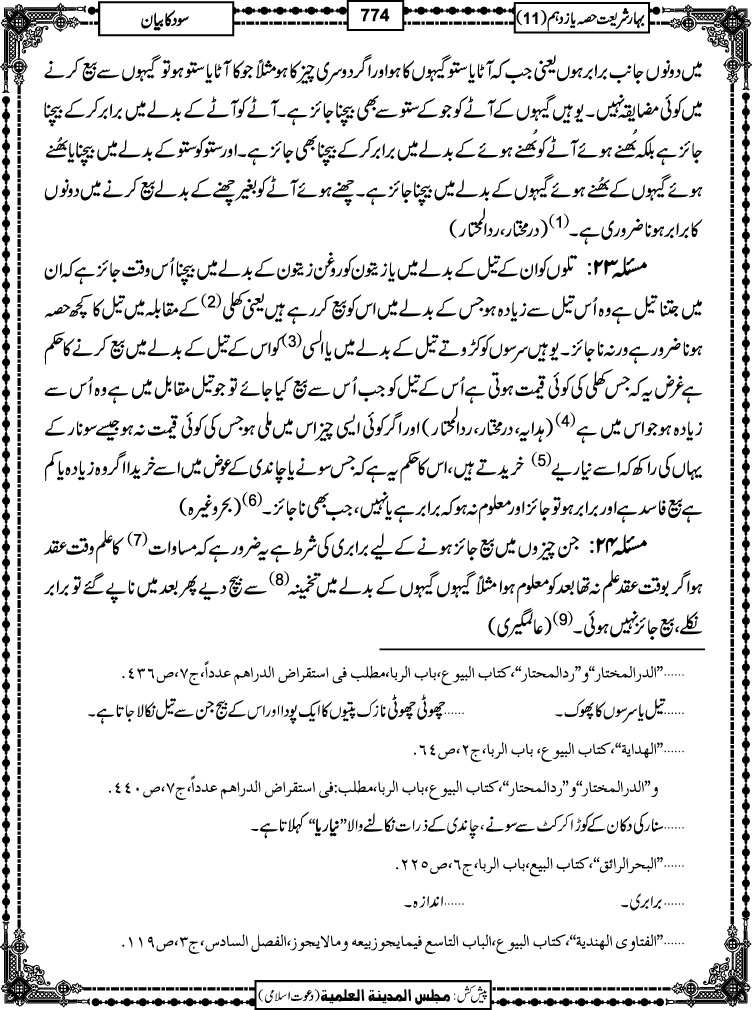 بہار شریعت حصہ یازدہم (11)
774
سود کا بیان
میں دونوں جانب برابر ہوں یعنی جب کہ آٹا یا ستو گیہوں کا ہو اور اگر دوسری چیز کا ہو مثلاً جو کا آٹا یا ستو ہو تو گیہوں سے بیع کرنے
میں کوئی مضایقہ نہیں۔ یوہیں گیہوں کے آٹے کو جو کے ستو سے بھی بیچنا جائز ہے۔ آٹے کو آٹے کے بدلے میں برابر کرکے بیچنا
جائز ہے بلکہ بُھنے ہوئے آٹے کو بُھنے ہوئے کے بدلے میں برابر کرکے بیچنا بھی جائز ہے۔ اور ستو کو ستو کے بدلے میں بیچنا یا بُھنے
ہوئے گیہوں کے بُھنے ہوئے گیہوں کے بدلے میں بیچنا جائز ہے۔ چھنے ہوئے آٹے کو بغیر چھنے کے بدلے بیع کرنے میں دونوں
کا برابر ہونا ضروری ہے۔ (1) (درمختار، ردالمحتار)
مسئلہ ۲۳: تلوں کو ان کے تیل کے بدلے میں یا زیتون کو روغن زیتون کے بدلے میں بیچنا اُس وقت جائز ہے کہ ان
میں جتنا تیل ہے وہ اُس تیل سے زیادہ ہو جس کے بدلے میں اس کو بیع کر رہے ہیں یعنی کھلی (2) کے مقابلہ میں تیل کا کچھ حصہ
ہونا ضرور ہے ورنہ ناجائز۔ یوہیں سرسوں کو کڑوے تیل کے بدلے میں یا السی (3) کو اس کے تیل کے بدلے میں بیع کرنے کا حکم
ہے غرض یہ کہ جس کھلی کی کوئی قیمت ہوتی ہے اُس کے تیل کو جب اُس سے بیع کیا جائے تو جو تیل مقابل میں ہے وہ اُس سے
زیادہ ہو جو اس میں ہے (4) (ہدایہ، درمختار، ردالمحتار) اور اگر کوئی ایسی چیز اس میں ملی ہو جس کی کوئی قیمت نہ ہو جیسے سونار کے
یہاں کی راکھ کہ اسے نیاریے (5) خریدتے ہیں، اس کا حکم یہ ہے کہ جس سونے یا چاندی کے عوض میں اسے خریدا اگر وہ زیادہ یا کم
ہے بیع فاسد ہے اور برابر ہو تو جائز اور معلوم نہ ہو کہ برابر ہے یا نہیں، جب بھی ناجائز۔ (6) (بحر وغیرہ)
مسئلہ ۲۴: جن چیزوں میں بیع جائز ہونے کے لیے برابری کی شرط ہے یہ ضرور ہے کہ مساوات (7) کا علم وقت عقد
ہو اگر بوقت عقد علم نہ تھا بعد کو معلوم ہوا مثلاً گیہوں گیہوں کے بدلے میں تخمینہ (8) سے بیچ دیے پھر بعد میں ناپے گئے تو برابر
نکلے، بیع جائز نہیں ہوئی۔ (9) (عالمگیری)
......"الدرالمختار"و"ردالمحتار"،کتاب البیوع،باب الربا،مطلب فی استقراض الدراھم عدداً،ج۷،ص۴۳۶.
......تیل یا سرسوں کا پھوک۔ ......چھوٹی چھوٹی نازک پتیوں کا ایک پودا اور اس کے بیج جن سے تیل نکالا جاتا ہے۔
......"الھدایة"،کتاب البیوع، باب الربا،ج۲،ص۶۴.
و"الدرالمختار"و"ردالمحتار"،کتاب البیوع،باب الربا،مطلب:فی استقراض الدراھم عدداً،ج۷،ص۴۴۰.
......سنار کی دکان کے کوڑا کرکٹ سے سونے، چاندی کے ذرات نکالنے والا "نیاریا" کہلاتا ہے۔
......"البحرالرائق"،کتاب البیع،باب الربا،ج۶،ص۲۲۵.
......برابری۔ ......اندازہ۔
......"الفتاوی الھندیة"،کتاب البیوع،الباب التاسع فیمایجوزبیعہ ومالایجوز،الفصل السادس،ج۳،ص۱۱۹.
پیش کش: مجلس المدینة العلمیة (دعوت اسلامی)